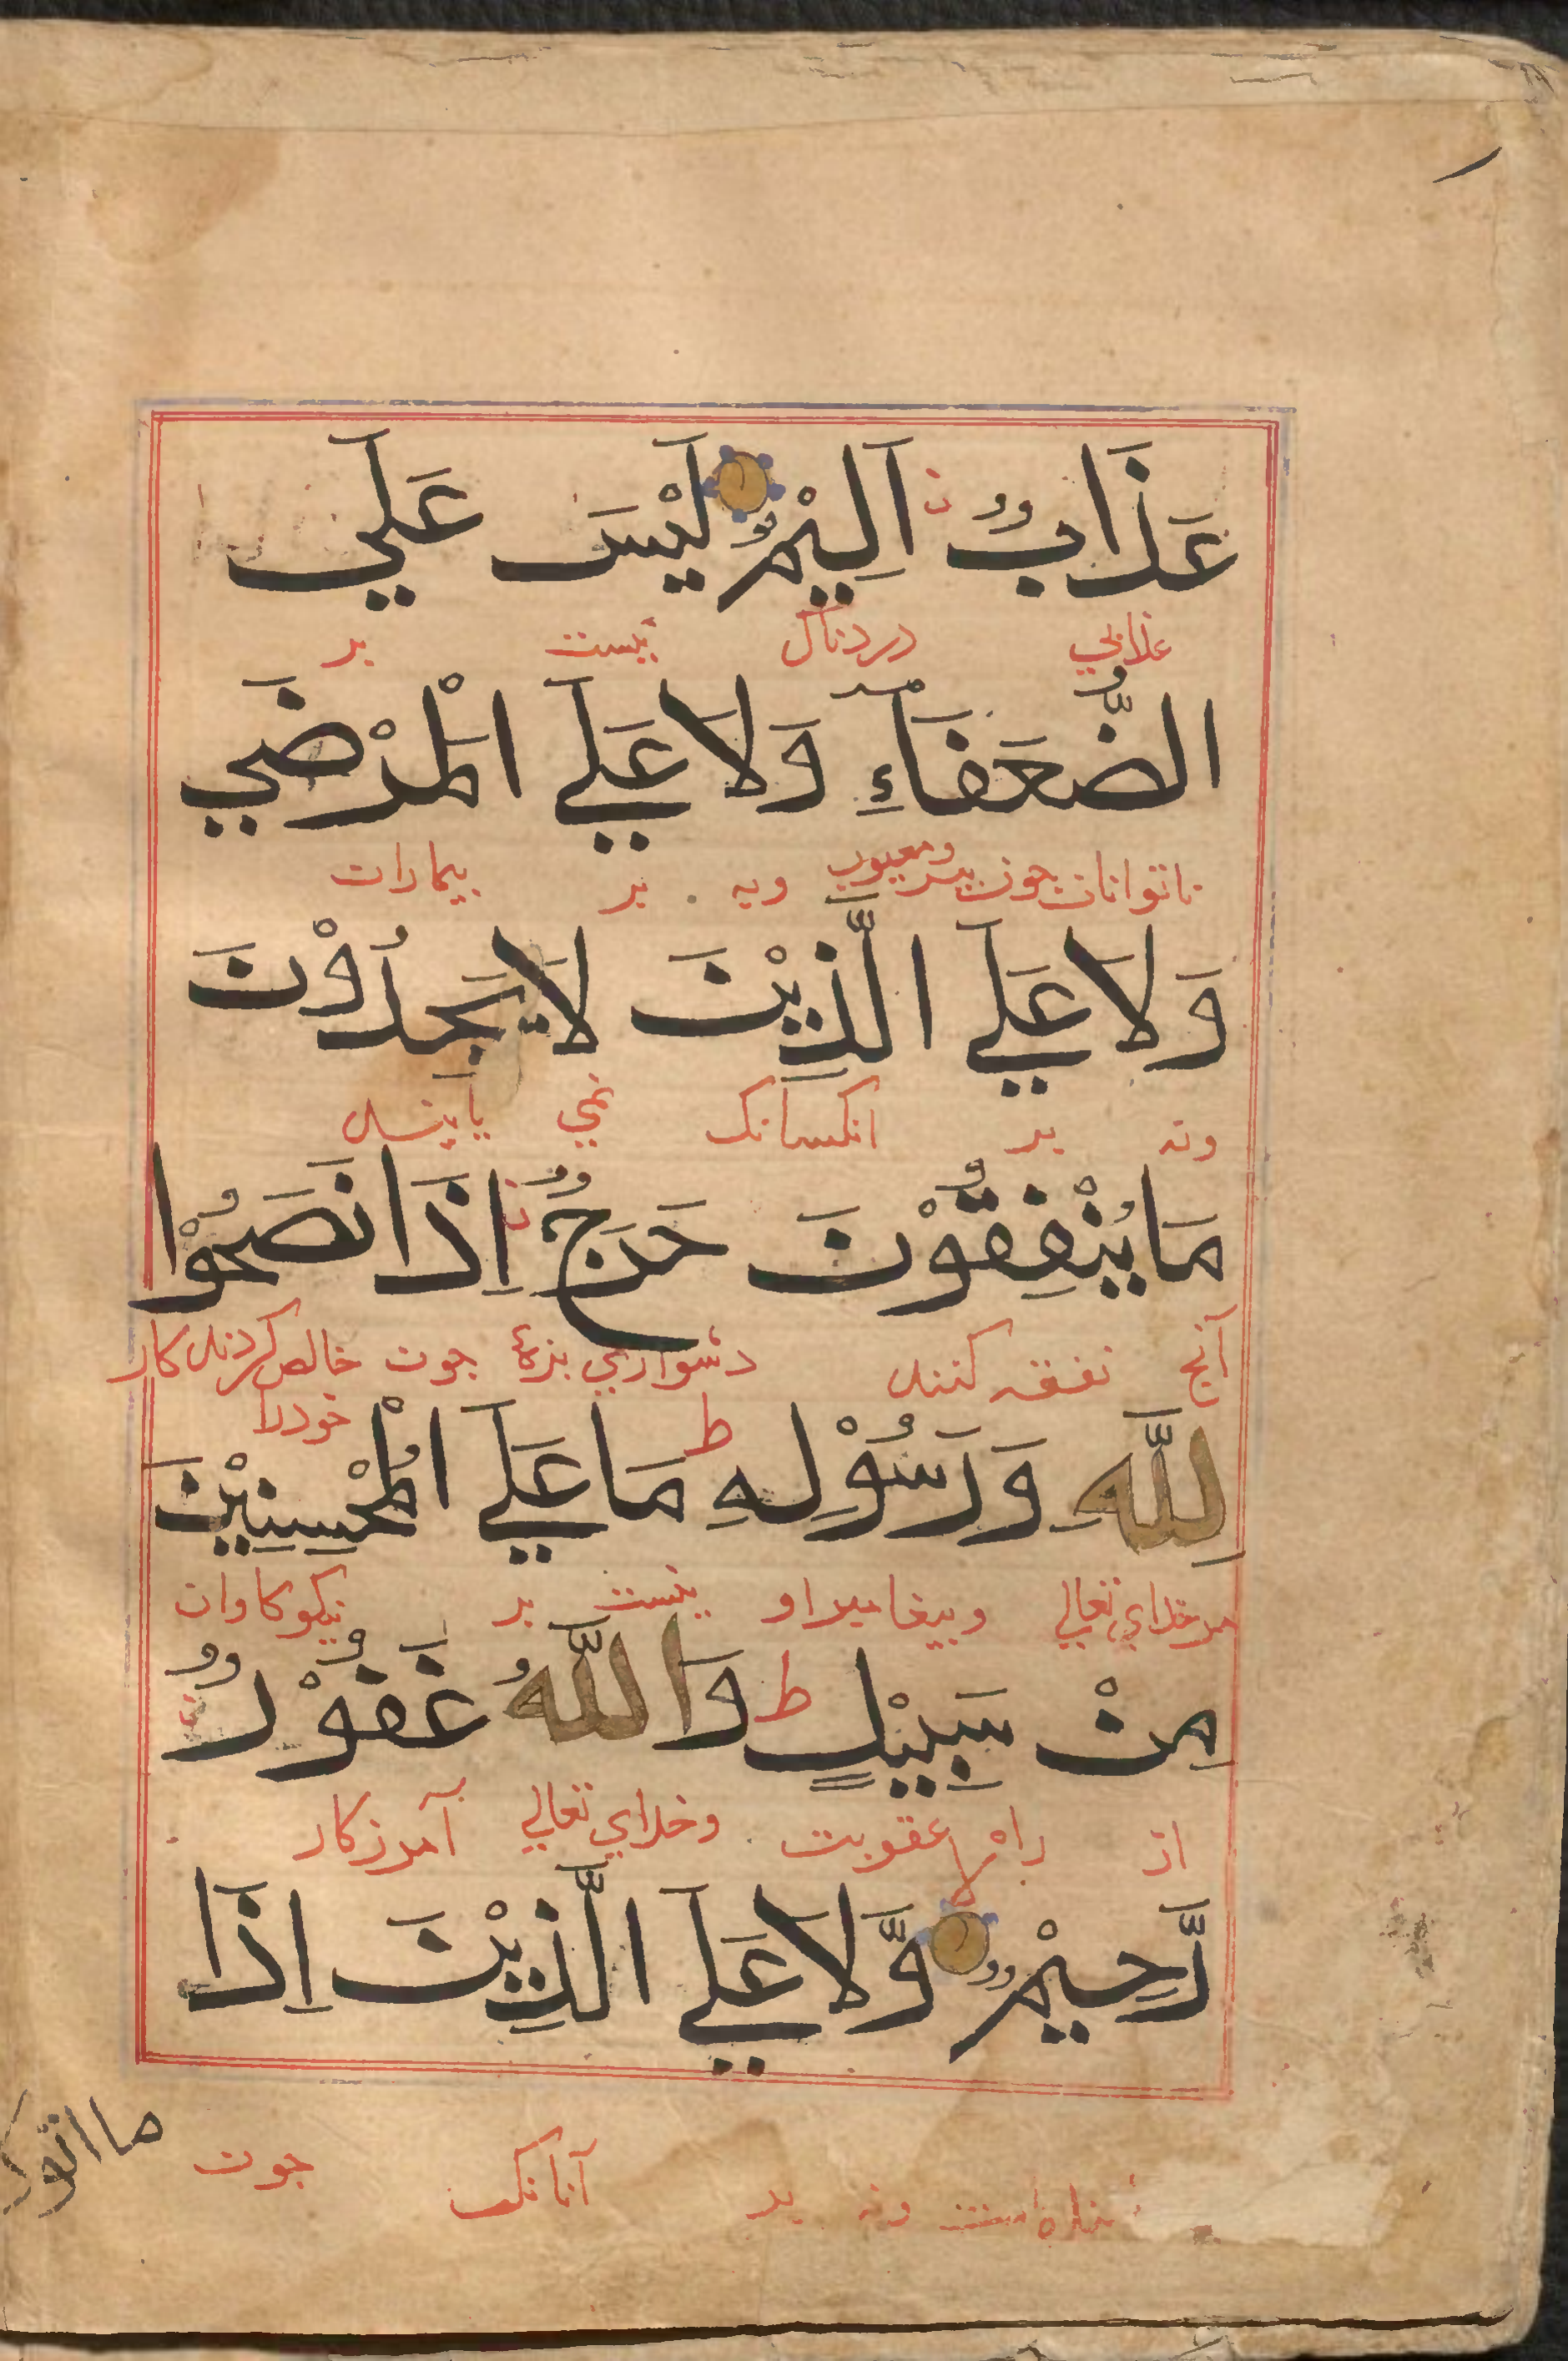 عَذَابٌ اَلِيْمٌ لَيْسَ عَلَي
عذابي دردناك نيست بر
الضُّعَفَآءِ وَلَا عَلَي الْمَرْضَي
ناتوانان چون پير ومعيوب ونه بر بيماران
وَلَا عَلَي الَّذِيْنَ لَا يَجِدُوْنَ
ونه بر انكسانك نمي يابند
مَا يُنْفِقُوْنَ حَرَجٌ اِذَا نَصَحُوْا
آنچ نفقه كنند دشواري بزۀ چون خالص كردند كار
خودرا
لِلّٰهِ وَرَسُوْلِهِ ط مَا عَلَي الْمُحْسِنِيْنَ
مر خداي تعالي وپيغامبر او نيست بر نيكوكاران
مِنْ سَبِيْلٍ ط وَاللّٰهُ غَفُوْرٌ
از راه عقوبت وخداي تعالي آمرزكار
رَّحِيْمٌ لا وَّلَا عَلَي الَّذِيْنَ اِذَا
ونه بر آنانك چون
ما اتوك